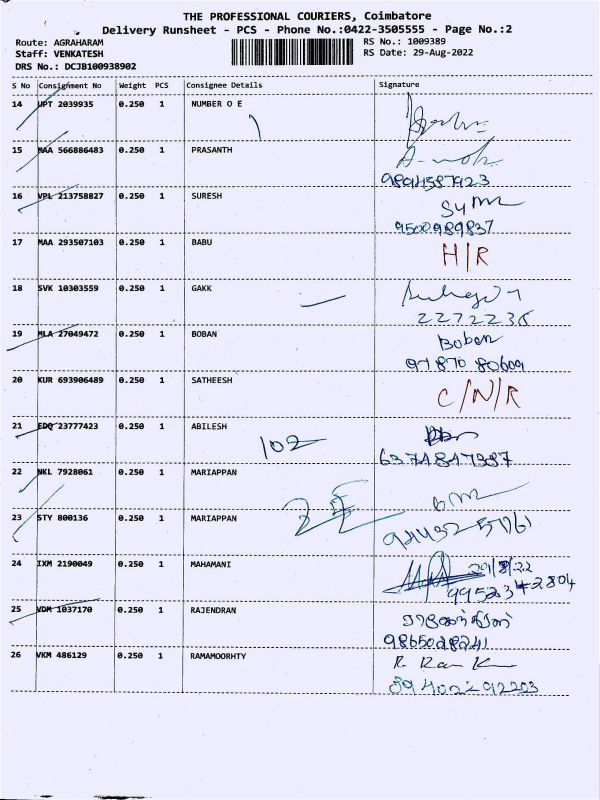 THE PROFESSIONAL COURIERS, Coimbatore
Delivery Runsheet - PCS - Phone No.:0422-3505555 - Page No.:2
Route: AGRAHARAM
Staff: VENKATESH
DRS No.: DCJB100938902
RS No.: 1009389
RS Date: 29-Aug-2022
S No Consignment No Weight PCS Consignee Details Signature
14 UPT 2039935 0.250 1 NUMBER O E
15 MAA 566886483 0.250 1 PRASANTH
9894587923
16 VPL 213758827 0.250 1 SURESH
9500989837
17 MAA 293507103 0.250 1 BABU H/R
18 SVK 10303559 0.250 1 GAKK
2272236
19 MLA 27049472 0.250 1 BOBAN Boban
97870 80609
20 KUR 693906489 0.250 1 SATHEESH C/N/R
21 EDQ 23777423 0.250 1 ABILESH
102
6374847387
22 NKL 7928061 0.250 1 MARIAPPAN
23 STY 800136 0.250 1 MARIAPPAN
24 IXM 2190049 0.250 1 MAHAMANI 29/8/22
9952342804
25 VDM 1037170 0.250 1 RAJENDRAN
9865028241
26 VKM 486129 0.250 1 RAMAMOORHTY